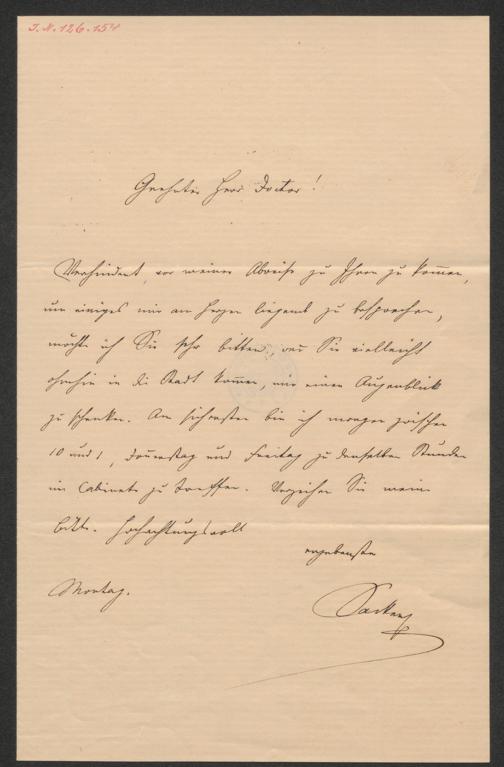 J. N. 126.154
Geehrter Herr Doctor!
Verhindert, vor meiner Abreise zu Ihnen zu kommen,
um einiges mir am Herzen liegend zu besprechen,
möchte ich Sie sehr bitten, wenn Sie vielleicht
ohnehin in die Stadt kommen, mir einen Augenblick
zu schenken. Am sichersten bin ich morgen zwischen
10 und 1, Donnerstag und Freitag zu denselben Stunden
im Cabinete zu treffen. Verzeihen Sie meine
Bitte. Hochachtungsvoll
ergebenster
Montag.
Sacken